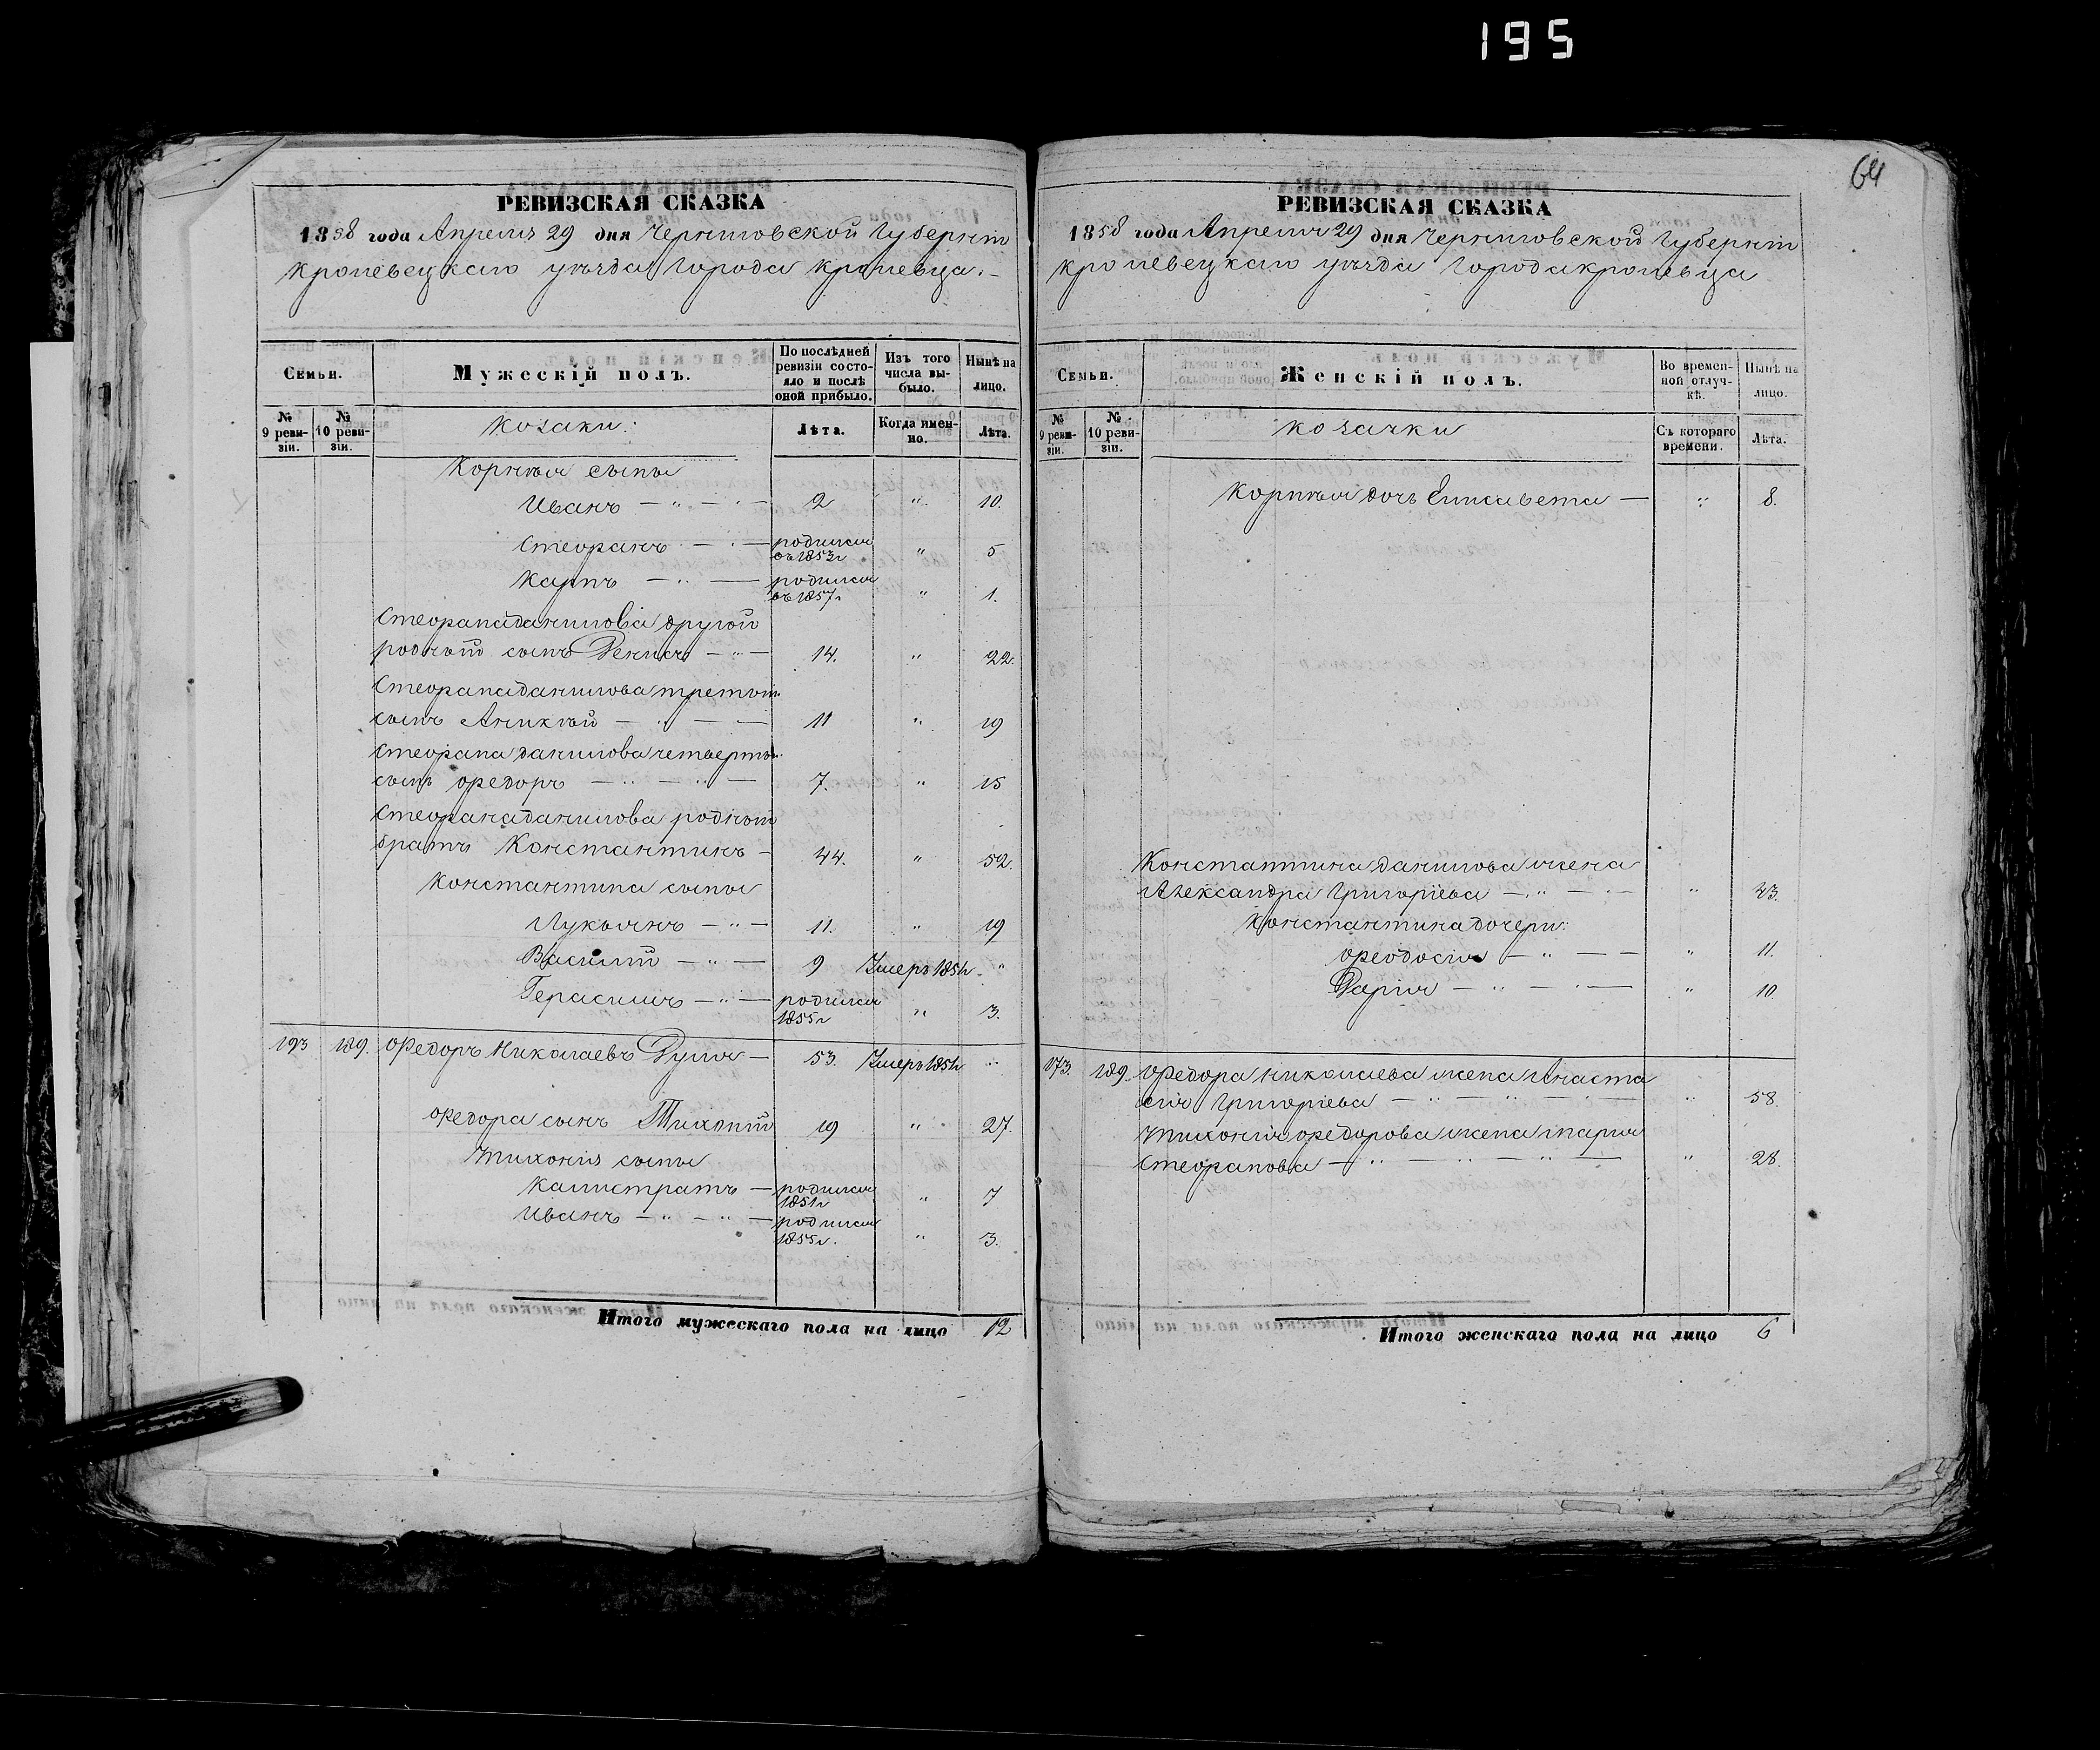 195
64
РЕВИЗСКАЯ СКАЗКА
1858 года Апреля 29 дня Черниговской Губерніи
Кролевецкаго уѣзда Города Кролевца.
Семьи.
Мужескій полъ.
По послѣдней ревизіи состояло и послѣ оной прибыло.
Изъ того числа выбыло.
Нынѣ на лицо.
№ 9 ревизіи.
№ 10 ревизіи.
Козаки:
Лѣта.
Когда именно.
Лѣта.
Корнѣя сыны
Иванъ — " — 2 " 10.
Стефанъ — родился въ 1853г " 5
Карпъ — " — родился въ 1857г " 1.
Стефана Данилова другой
родной сынъ Денисъ — " — 14. " 22.
Стефана Данилова третій
сынъ Аникѣй — " — 11 " 19
Стефана Данилова четвертый
сынъ Федоръ — " — " — 7. " 15
Стефана Данилова родной
братъ Константинъ — 44. " 52.
Константина сыны
Лукьянъ — " — 11. " 19
Василій — " — 9 Умеръ 1851г "
Герасимъ — " — родился 1855г " 3.
193 189. Федоръ Николаевъ — 53. Умеръ 1851г "
Федора сынъ Тихоній 19 " 27.
Тихонія сыны
Калистратъ — родился 1851г " 7
Иванъ — " — " — родился 1855г. " 3.
Итого мужескаго пола на лицо 12
РЕВИЗСКАЯ СКАЗКА
1858 года Апреля 29 дня Черниговской Губерніи
Кролевецкаго уѣзда Города Кролевца
Семьи.
Женскій полъ.
Во временной отлучкѣ.
Нынѣ на лицо.
№ 9 ревизіи.
№ 10 ревизіи.
Козачки
Съ котораго времени.
Лѣта.
Корнѣя дочь Елисавета — " 8.
Константина Данилова жена
Александра Григоріева — " — " 43.
Константина дочери:
Феодосія — " — — " 11.
Дарія — " — — " 10.
173. 189. Федора Николаева жена Анаста
сія Григоріева — " — " — " 58.
Тихонія Федорова жена Марія
Стефанова — " — " — " — " 28.
Итого женскаго пола на лицо 6